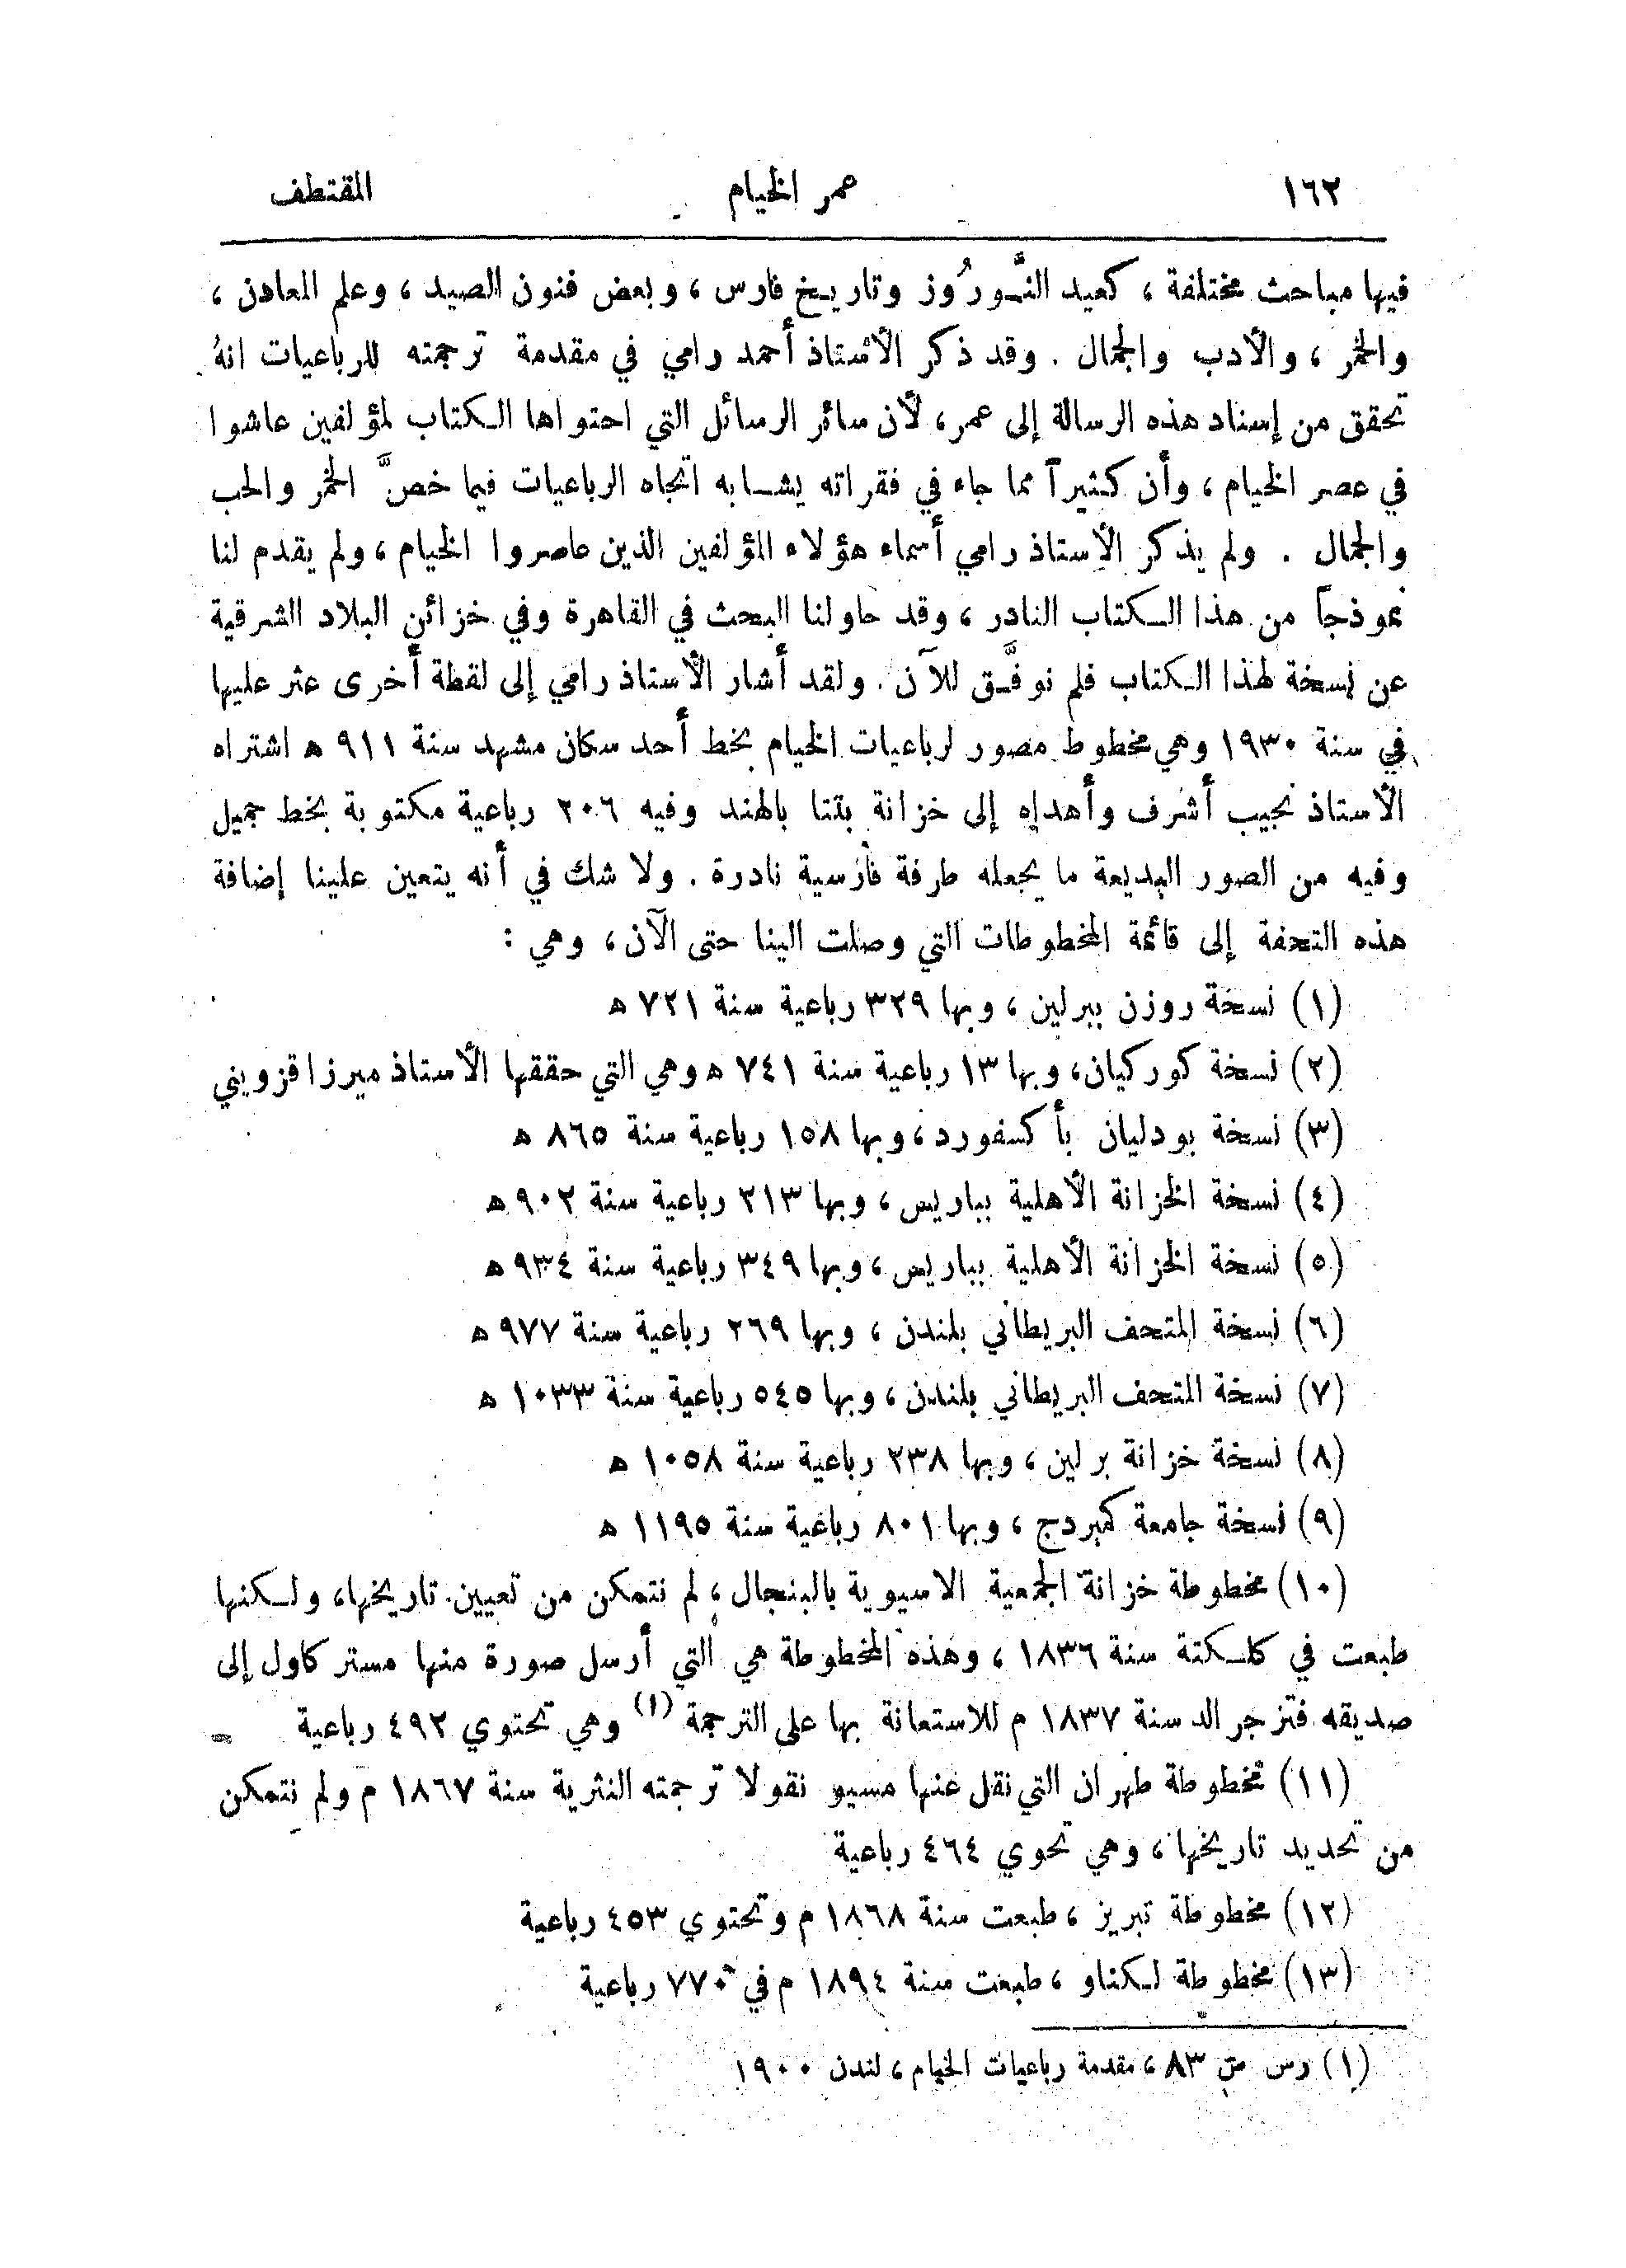 ١٦٢ عمر الخيام المقتطف
فيها مباحث مختلفة ، كعيد النَّـورُوز وتاريخ فارس ، وبعض فنون الصيد ، وعلم المعادن ،
والخمر ، والأدب والجمال . وقد ذكر الأستاذ أحمد رامي في مقدمة ترجمته للرباعيات انهُ
تحقق من إسناد هذه الرسالة إلى عمر ، لأن سائر الرسائل التي احتواها الكتاب لمؤلفين عاشوا
في عصر الخيام ، وأن كثيراً مما جاء في فقراته يشابه اتجاه الرباعيات فيما خصَّ الخمر والحب
والجمال . ولم يذكر الأستاذ رامي أسماء هؤلاء المؤلفين الذين عاصروا الخيام ، ولم يقدم لنا
نموذجاً من هذا الكتاب النادر ، وقد حاولنا البحث في القاهرة وفي خزائن البلاد الشرقية
عن نسخة لهذا الكتاب فلم نوفَّـق للآن . ولقد أشار الأستاذ رامي إلى لقطة أخرى عثر عليها
في سنة ١٩٣٠ وهي مخطوط مصور لرباعيات الخيام بخط أحد سكان مشهد سنة ٩١١ ه اشتراه
الأستاذ نجيب أشرف وأهداه إلى خزانة بتنا بالهند وفيه ٢٠٦ رباعية مكتوبة بخط جميل
وفيه من الصور البديعة ما يجعله طرفة فارسية نادرة . ولا شك في أنه يتعين علينا إضافة
هذه التحفة إلى قائمة المخطوطات التي وصلت الينا حتى الآن ، وهي :
(١) نسخة روزن ببرلين ، وبها ٣٢٩ رباعية سنة ٧٢١ ه
(٢) نسخة كوركيان ، وبها ١٣ رباعية سنة ٧٤١ ه وهي التي حققها الأستاذ ميرزا قزويني
(٣) نسخة بودليان بأكسفورد ، وبها ١٥٨ رباعية سنة ٨٦٥ ه
(٤) نسخة الخزانة الأهلية بباريس ، وبها ٢١٣ رباعية سنة ٩٠٢ ه
(٥) نسخة الخزانة الأهلية بباريس ، وبها ٣٤٩ رباعية سنة ٩٣٤ ه
(٦) نسخة المتحف البريطاني بلندن ، وبها ٢٦٩ رباعية سنة ٩٧٧ ه
(٧) نسخة المتحف البريطاني بلندن ، وبها ٥٤٥ رباعية سنة ١٠٣٣ ه
(٨) نسخة خزانة برلين ، وبها ٢٣٨ رباعية سنة ١٠٥٨ ه
(٩) نسخة جامعة كمبردج ، وبها ٨٠١ رباعية سنة ١١٩٥ ه
(١٠) مخطوطة خزانة الجمعية الاسيوية بالبنجال ، لم نتمكن من تعيين تاريخها ، ولكنها
طبعت في كلكتة سنة ١٨٣٦ ، وهذه المخطوطة هي التي أرسل صورة منها مستر كاول إلى
صديقه فتزجرالد سنة ١٨٣٧ م للاستعانة بها على الترجمة (١) وهي تحتوي ٤٩٢ رباعية
(١١) مخطوطة طهران التي نقل عنها مسيو نقولا ترجمته النثرية سنة ١٨٦٧ م ولم نتمكن
من تحديد تاريخها ، وهي تحوي ٤٦٤ رباعية
(١٢) مخطوطة تبريز ، طبعت سنة ١٨٦٨ م وتحتوي ٤٥٣ رباعية
(١٣) مخطوطة لكناو ، طبعت سنة ١٨٩٤ م في ٧٧٠ رباعية
(١) رس ص ٨٣ ، مقدمة رباعيات الخيام ، لندن ١٩٠٠